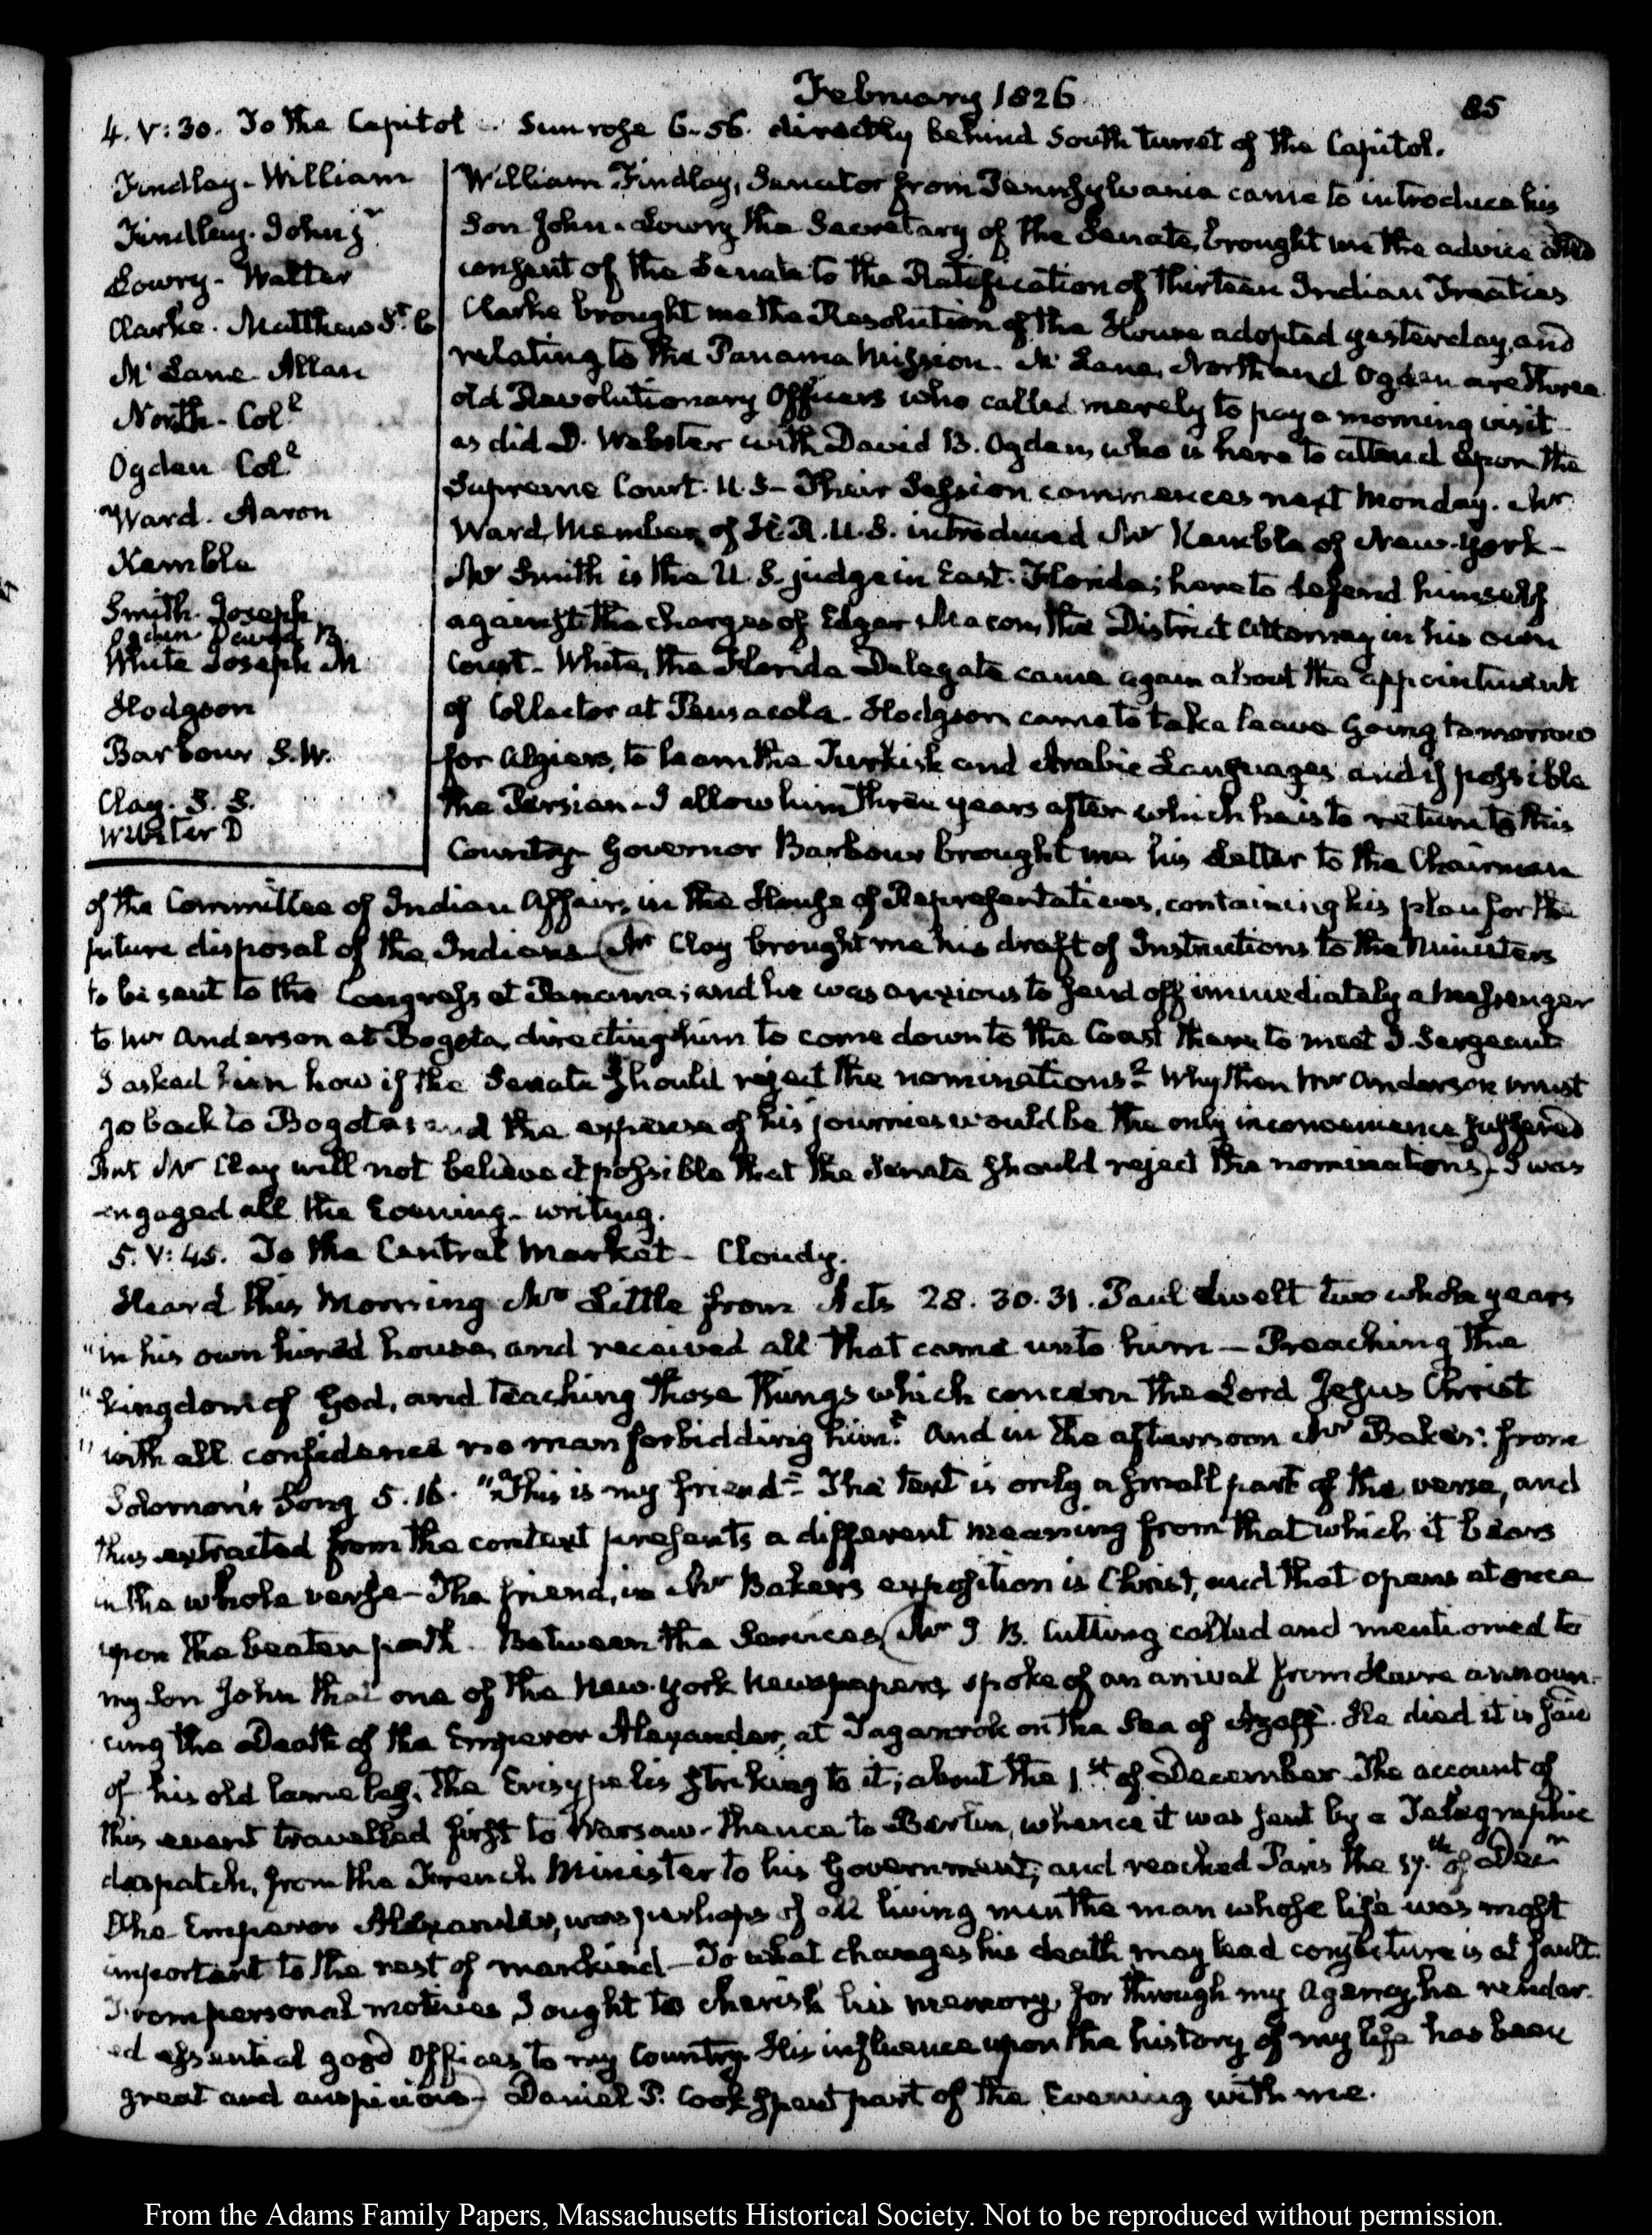 February 1826
85
4. V:30. To the Capitol - Sun rose 6-56. directly behind South turret of the Capitol.
Findlay - William
Findlay. John jr
Lowry - Walter
Clarke. Matthew St. C
Mc Lane Allan
North - Coll
Ogden Coll
Ward. Aaron
Kemble
Smith. Joseph
Ogden David B.
White Joseph M
Hodgson
Barbour S.W.
Clay. S. S.
Webster D
William Findlay, Senator from Pennsylvania came to introduce his
Son John. Lowry the Secretary of the Senate, brought me the advice and
consent of the Senate to the Ratification of thirteen Indian Treaties
Clarke brought me the Resolution of the House adopted yesterday, and
relating to the Panama Mission. Mc Lane, North and Ogden are three
old Revolutionary Officers who called merely to pay a morning visit -
as did D. Webster with David B. Ogden, who is here to attend upon the
Supreme Court. U.S - Their Session commences next Monday. Mr
Ward, Member of H.R. U.S. introduced Mr Kemble of New-York -
Mr Smith is the U.S. judge in East-Florida; here to defend himself
against the charges of Edgar Macon, the District Attorney in his own
Court - White, the Florida Delegate came again about the appointment
of Collector at Pensacola. Hodgson came to take leave going tomorrow
for Algiers, to learn the Turkish and Arabic Languages and if possible
the Persian - I allow him three years after which he is to return to this
Country - Governor Barbour brought me his Letter to the Chairman
of the Committee of Indian Affairs, in the House of Representatives, containing his plan for the
future disposal of the Indians (Mr Clay brought me his draft of Instructions to the Ministers
to be sent to the Congress at Panama; and he was anxious to send off immediately a Messenger
to Mr Anderson at Bogota, directing him to come down to the Coast there to meet J. Sergeant
I asked him how if the Senate should reject the nominations? Why then Mr Anderson must
go back to Bogota; and the expense of his journies would be the only inconvenience suffered
But Mr Clay will not believe it possible that the Senate should reject the nominations) - I was
engaged all the Evening - writing.
5. V:45. To the Central Market - Cloudy.
Heard this Morning Mr Little from Acts 28. 30. 31. Paul dwelt two whole years
"in his own hired house, and received all that came unto him - Preaching the
"kingdom of God, and teaching those things which concern the Lord Jesus Christ
"with all confidence no man forbidding him." And in the afternoon Mr Baker: from
Solomon's Song 5.16. "This is my friend" - The text is only a small part of the verse, and
thus extracted from the context presents a different meaning from that which it bears
in the whole verse - The friend, in Mr Baker's exposition is Christ, and that opens at once
upon the beaten path. Between the Services (Mr J. B. Cutting called and mentioned to
my Son John that one of the New-York Newspapers, spoke of an arrival from Havre announ-
cing the Death of the Emperor Alexander, at Taganrok on the Sea of Azoff. He died it is said
of his old lame leg. The Erisypelis striking to it; about the 1st of December. The account of
this event travelled first to Warsaw. thence to Berlin, whence it was sent by a Telegraphic
despatch, from the French Minister to his Government; and reached Paris the 17th of Decr
The Emperor Alexander, was perhaps of all living men the man whose life was most
important to the rest of mankind - To what changes his death may lead conjecture is at fault.
From personal motives I ought to cherish his memory, for through my Agency he render-
ed essential good Offices to my Country. His influence upon the history of my life has been
great and auspicious) - Daniel P. Cook spent part of the Evening with me.
From the Adams Family Papers, Massachusetts Historical Society. Not to be reproduced without permission.